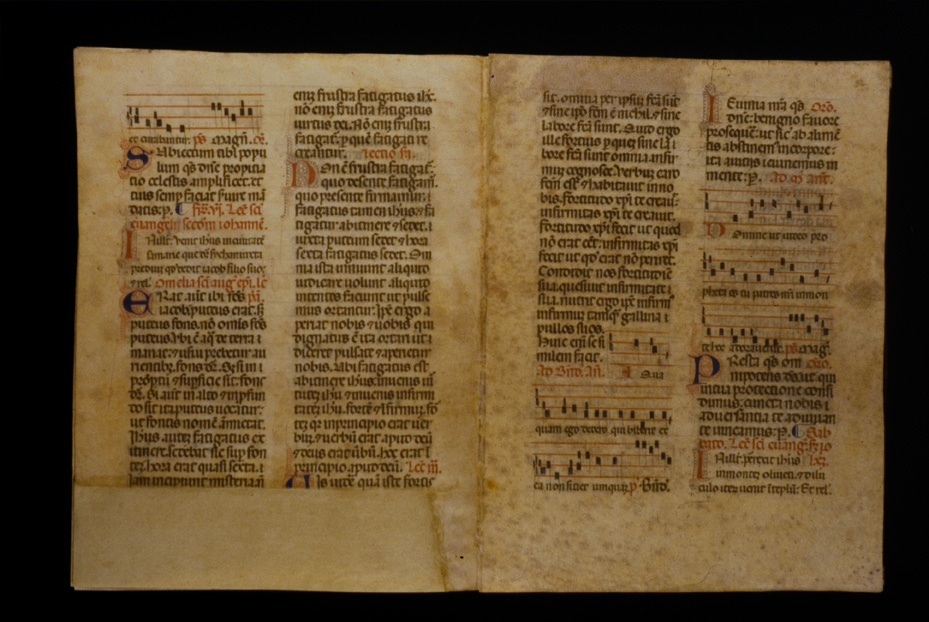 et curabuntur. ps magn. or.
Subiectum tibi popu
lum qs dne propicia
tio celestis amplificet. et
tuis semp faciat seruire man
datis. p. fr. vi. Lec sci
euangelii secdm iohannem.
In illo t. venit ihs in ciuitate
samarie que dr sychar iuxta
predium qd dedit iacob filio suo
et rel. Omelia sci aug epi. le
Erat aut ibi fons pa
iacob puteus erat. s;
puteus fons. non omis fons
puteus. Ubi e aq de terra
manat et usui prebetur au
rientib; fons dr. Si in
proptu et supficie sit: fons
dr. Si aut in alto et ipfun
do sit: ita puteus uocatur:
ut fontis nomen amictat.
Ihus aute fatigatus ex
itinere. sedebat sic sup fon
tem. hora erat quasi sexta. i
iam incipiunt misteria
enim frustra fatigatus ihc.
non eni frustra fatigatus
uirtus dei. No eni frustra
fatigat. p que fatigati re
creantur. lectio
Non e frustra fatigat.
quo deserente fatigam.
quo presente firmamur.
fatigatus tamen ihus et fa
tigatur ab itinere et sedet.
iuxta puteum sedet et hora
sexta fatigatus sedet. Om
nia ista innuunt aliquid
indicare uolunt aliquid
intentos faciunt ut pulse
mus ortantur. Ipe ergo a
periat nobis et uobis qui
dignatus e ita ortari ut
diceret pulsate et aperietur
nobis. Ubi fatigatus est
ab itinere ihus. inuenis in
tatem ihu. forte et infirmu. for
tez qr in principio erat uer
bu. et uerbu erat aput deu
et deus erat uerbu. hec erat i
principio aput deu. Lec iii.
uis uide qua iste fortis
sit. omnia per ipsum facta sunt
et sine ipo fcm e nichil. et sine
labore fca sunt. Quid ergo
illo fortius p que sine la
bore fca sunt omnia. infir
mu cognosce. Verbum caro
fcm est et habitauit in no
bis. fortitudo xpi te creauit
infirmitas xpi te creauit.
fortitudo xpi fecit ut quod
non erat eet: infirmitas xpi
fecit ut qd erat no periret.
Condidit nos fortitudine
sua. quesiuit infirmitate
sua. nutrit ergo ipe infirm
infirmu tamq; gallina
pullos suos.
hunc eni se si
milem facit.
Ad Bndc. An. Aqua
quam ego dedero qui biberit ex
ea non siciet umquam. p Bnd.
Ieiunia nra qs oro.
dne: benigno fauore
prosequere: ut sic ab alimen
tis abstinem in corpore:
ita a uitiis ieiunemus in
mente: p. ad m ant.
Domine ut uideo pro
pheta es tu patres nri in mon
te hoc adorauerunt. ps mag.
Presta qs om oro.
nipotens deus: ut qui
in tua protectione confi
dimus: cuncta nobis
aduersantia te adiuuan
te uincamus. p. Sab
bato. Lec sci euang. io
In illo t. perrexit ihus hez.
in montem oliueti. et dilu
culo iterum uenit i teplu: Et rel.